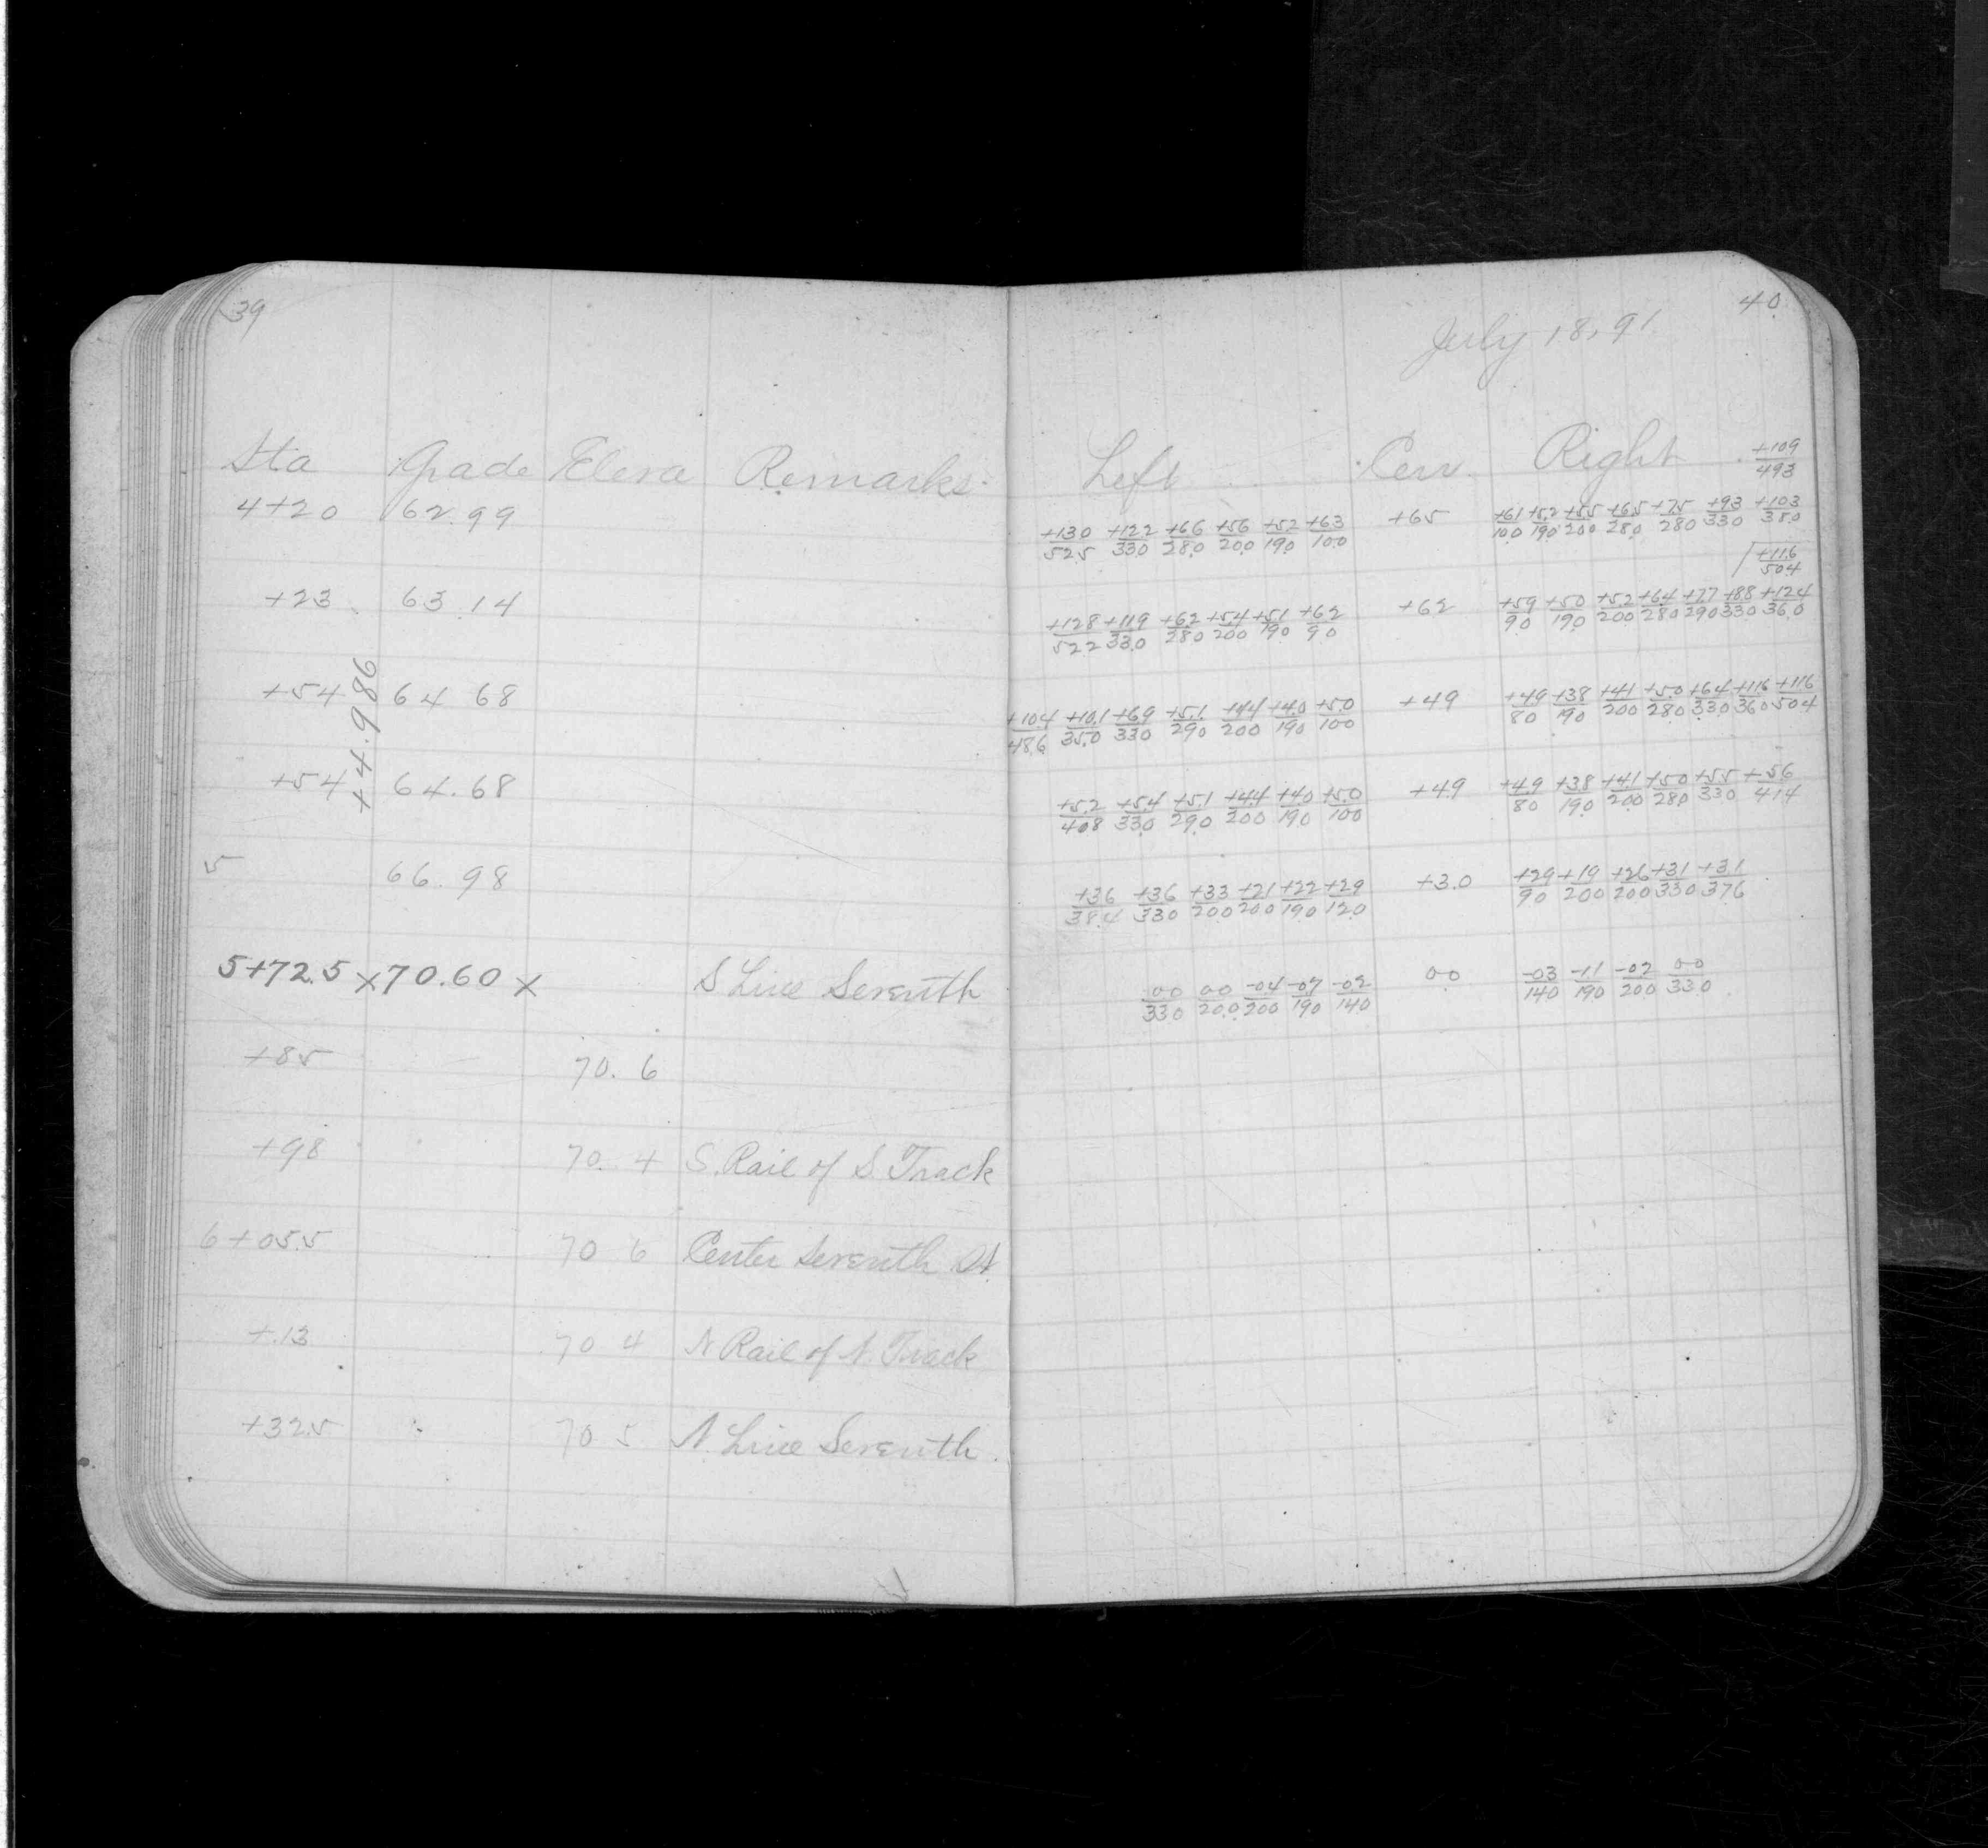 39
Sta Grade Eleva Remarks
4+20 62.99
+23 63.14
+54 64 68
+4.986
+54 64.68
5 66.98
5+72.5 x 70.60 x S Line Seventh
+85 70.6
+98 70.4 S. Rail of S. Track
6+05.5 70 6 Center Seventh St.
+13 70 4 N Rail of N. Track
+32.5 70 5 N. Line Seventh.
40
July 18, 91.
Left Cen. Right +109/493
+130/52.5 +122/33.0 +66/28.0 +56/20.0 +52/19.0 +63/10.0 +65 +61/10.0 +5.2/19.0 +5.5/20.0 +6.5/28.0 +75/280 +93/330 +103/38.0
+11.6/504
+128/522 +119/33.0 +62/28.0 +5.4/200 +5.1/190 +62/90 +62 +59/90 +50/190 +5.2/200 +64/280 +77/290 +88/330 +124/360
+104/48.6 +10.1/35.0 +69/330 +5.1/290 +44/200 +4.0/190 +5.0/100 +49 +49/80 +38/190 +41/200 +5.0/280 +64/330 +116/360 +116/504
+5.2/408 +5.4/330 +5.1/290 +4.4/200 +4.0/190 +5.0/100 +49 +4.9/80 +3.8/190 +41/200 +50/280 +55/330 +56/414
+36/38.4 +36/330 +33/200 +21/200 +22/190 +29/120 +3.0 +29/90 +19/200 +26/200 +31/330 +3.1/376
00/330 00/20.0 -04/200 -07/190 -02/140 00 -03/140 -11/190 -02/200 00/330